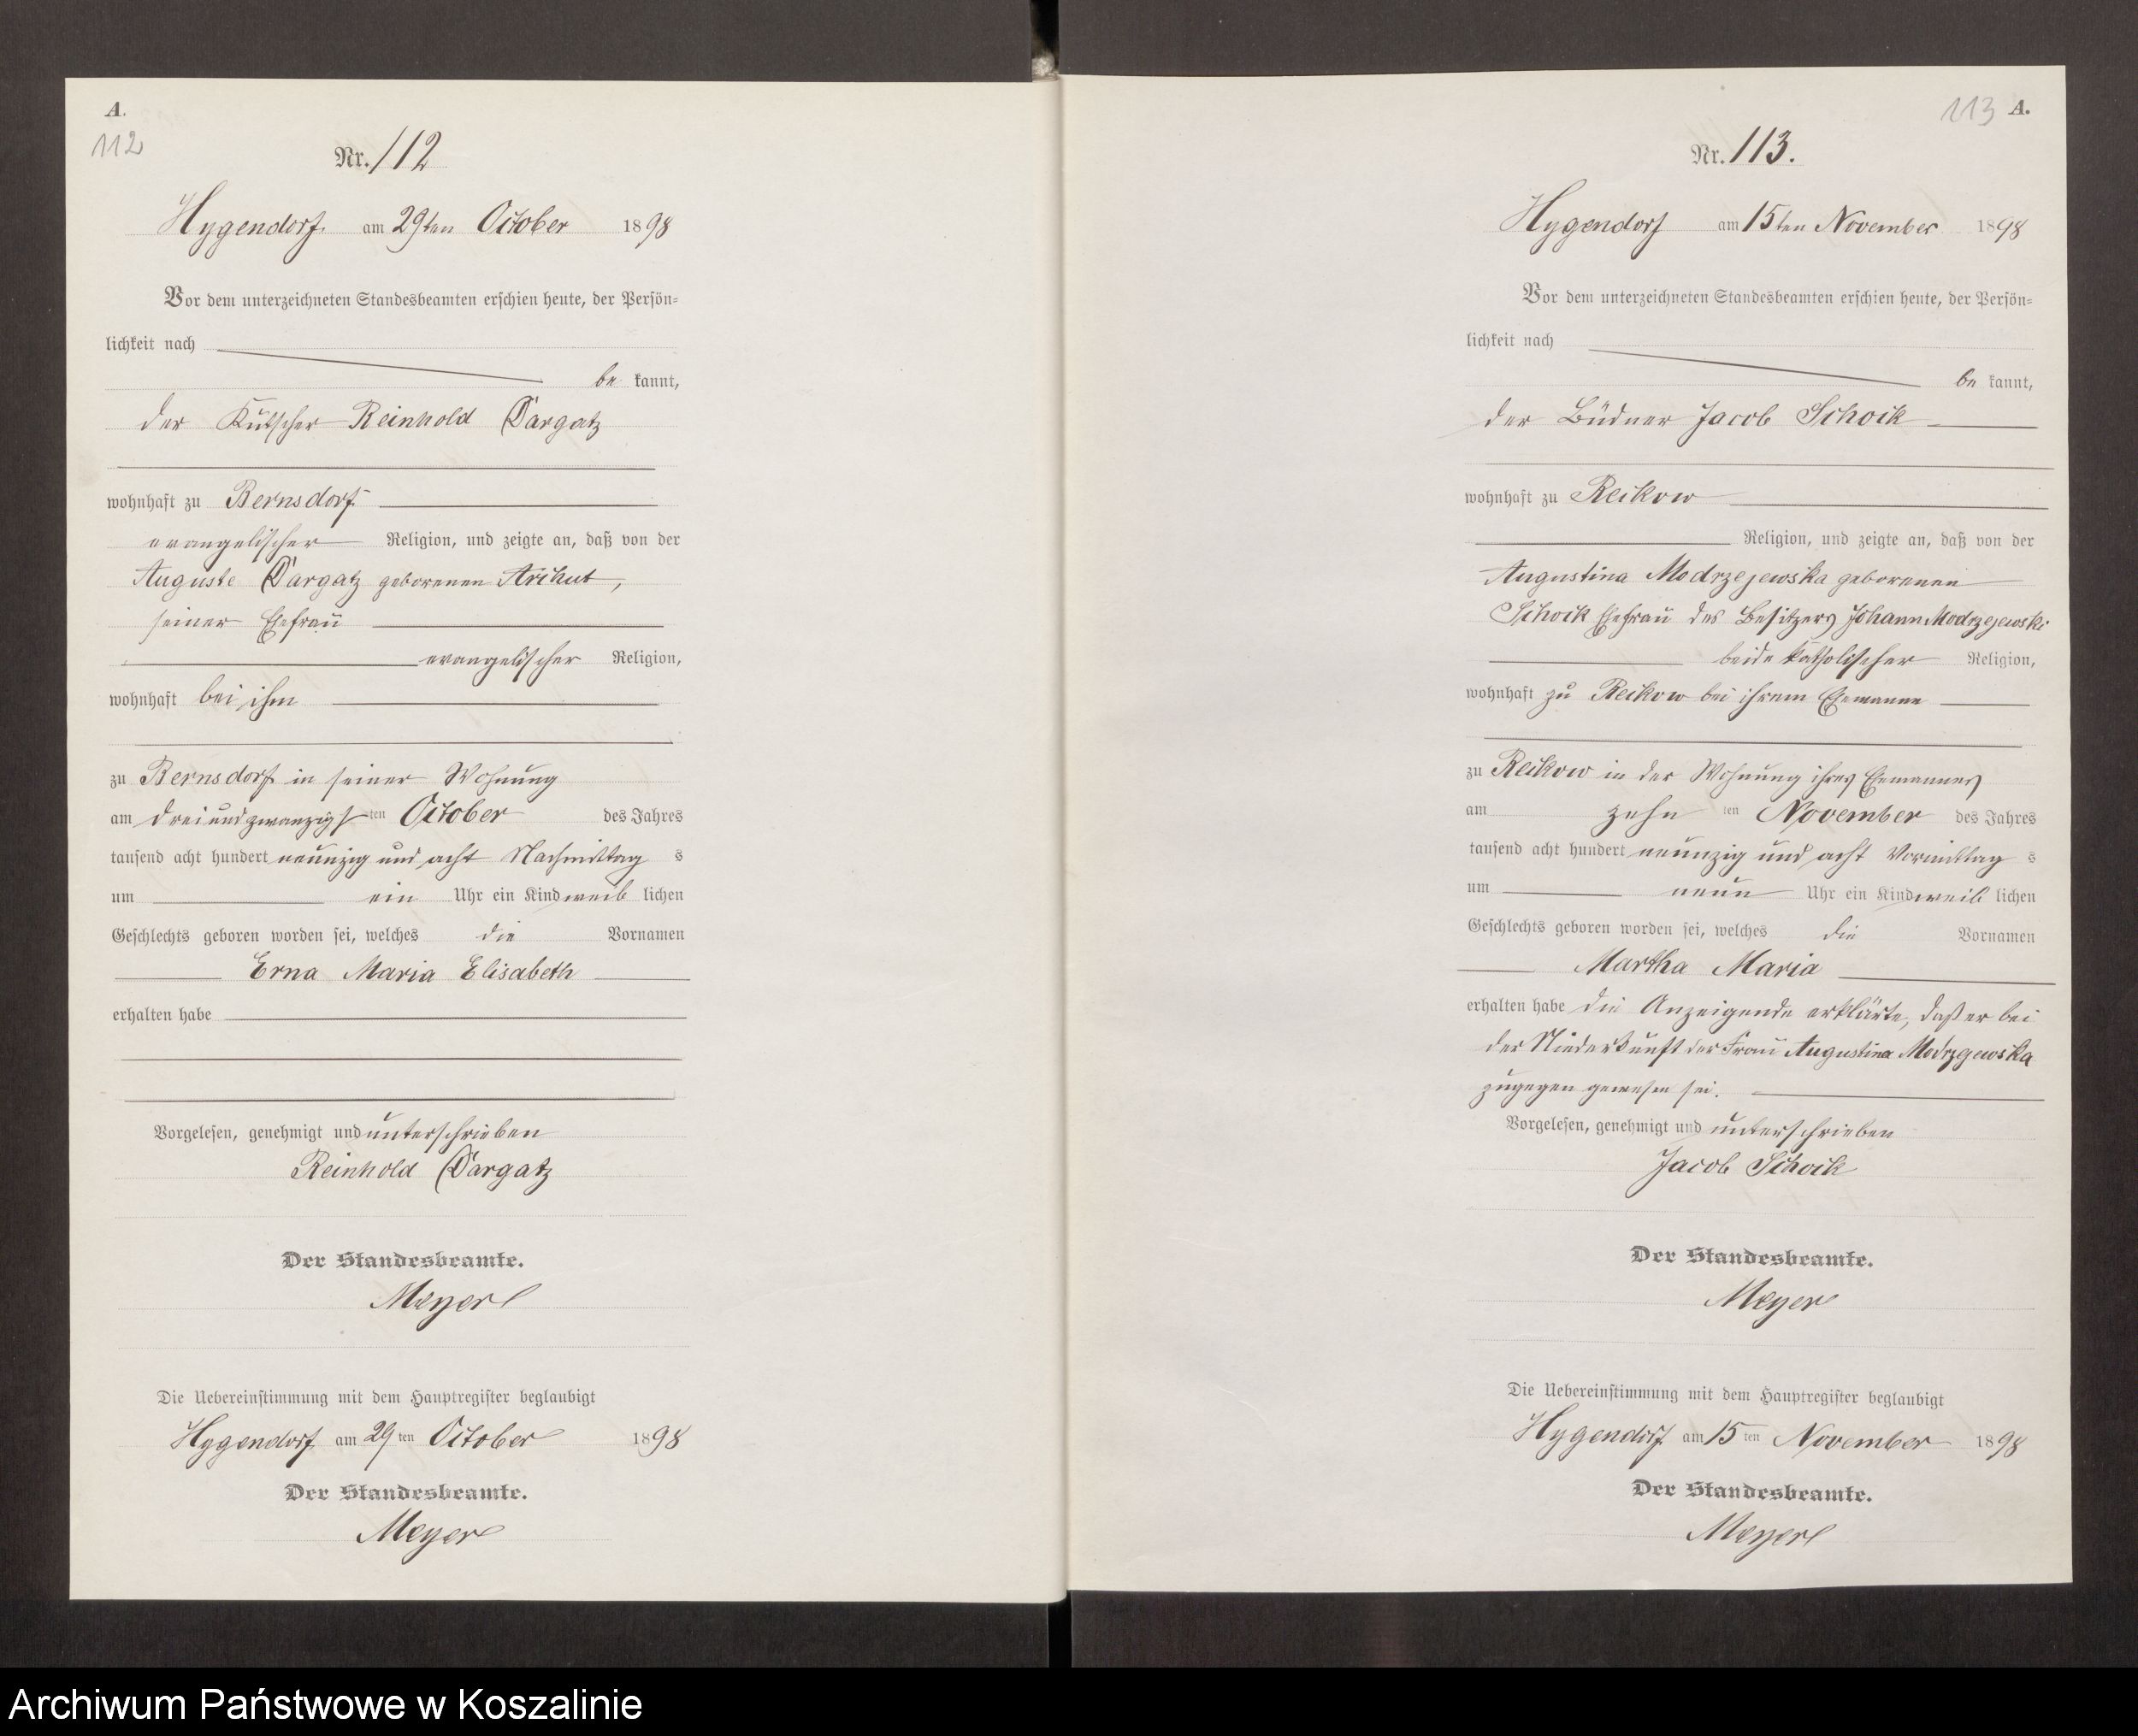 A.
112
Nr. 112
Hygendorf am 29ten October 1898
Vor dem unterzeichneten Standesbeamten erschien heute, der Persön=
lichkeit nach
be kannt,
der Kutscher Reinhold Dargatz
wohnhaft zu Bernsdorf
evangelischer Religion, und zeigte an, daß von der
Auguste Dargatz geborenen Arihut,
seiner Ehefrau
evangelischer Religion,
wohnhaft bei ihm
zu Bernsdorf in seiner Wohnung
am dreiundzwanzigsten October des Jahres
tausend acht hundert neunzig und acht Nachmittags
um ein Uhr ein Kind weiblichen
Geschlechts geboren worden sei, welches die Vornamen
Erna Maria Elisabeth
erhalten habe
Vorgelesen, genehmigt und unterschrieben
Reinhold Dargatz
Der Standesbeamte.
Meyer
Die Uebereinstimmung mit dem Hauptregister beglaubigt
Hygendorf am 29ten October 1898
Der Standesbeamte.
Meyer
113 A.
Nr. 113.
Hygendorf am 15ten November 1898
Vor dem unterzeichneten Standesbeamten erschien heute, der Persön=
lichkeit nach
be kannt,
der Büdner Jacob Schoik
wohnhaft zu Reikow
Religion, und zeigte an, daß von der
Augustina Modrzejewska geborenen
Schoik Ehefrau des Besitzers Johann Modrzejewski
beide katholischer Religion,
wohnhaft zu Reikow bei ihrem Ehemanne
zu Reikow in der Wohnung ihres Ehemannes
am zehnten November des Jahres
tausend acht hundert neunzig und acht Vormittags
um neun Uhr ein Kind weiblichen
Geschlechts geboren worden sei, welches die Vornamen
Martha Maria
erhalten habe die Anzeigende erklärte, daß er bei
der Niederkunft der Frau Augustina Modrzejewska
zugegen gewesen sei.
Vorgelesen, genehmigt und unterschrieben
Jacob Schoik
Der Standesbeamte.
Meyer
Die Uebereinstimmung mit dem Hauptregister beglaubigt
Hygendorf am 15ten November 1898
Der Standesbeamte.
Meyer
Archiwum Państwowe w Koszalinie